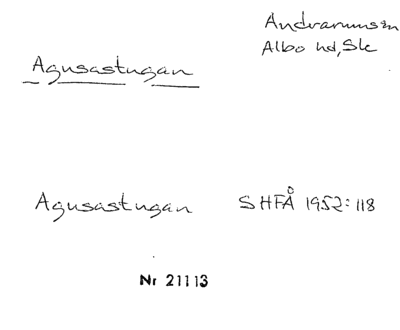 Andrarums sn
Albo hd, Sk
Agusastugan
Agusastugan SHFÅ 1952:118
Nr 21113